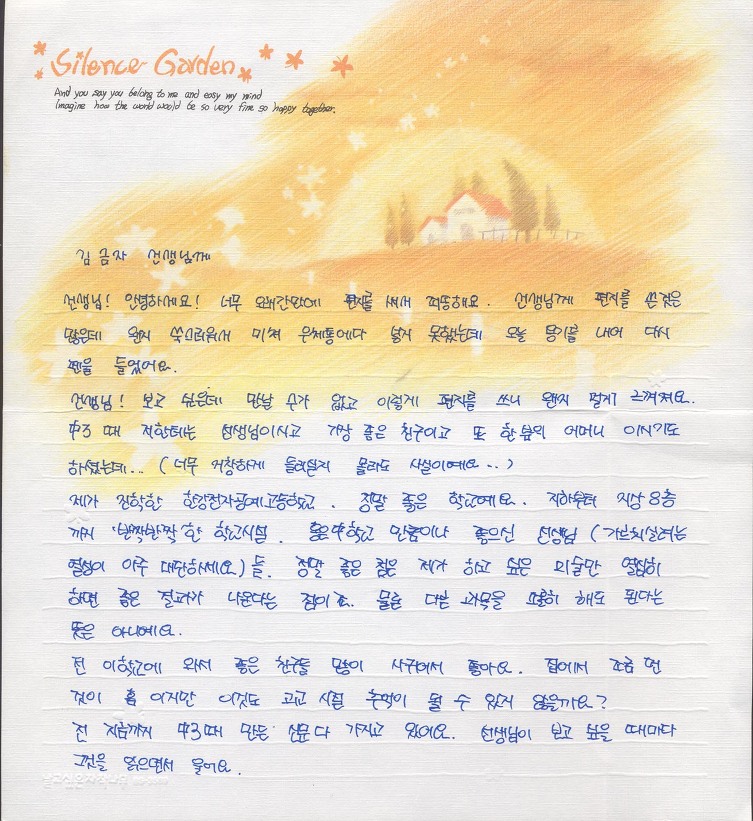 Silence Garden
And you say you belong to me and easy my mind
Imagine how the world would be so very fine so happy together.
김금자 선생님께
선생님! 안녕하세요! 너무 오래간만에 편지를 써서 죄송해요. 선생님께 편지를 쓴 것은
많은데 왠지 쑥스러워서 미처 우체통에다 넣지 못했는데 오늘 용기를 내어 다시
펜을 들었어요.
선생님! 보고 싶은데 만날 수가 없고 이렇게 편지를 쓰니 왠지 멀게 느껴져요.
中3 때 저한테는 선생님이시고 가장 좋은 친구이고 또 한 분의 어머니 이시기도
하셨는데... (너무 거창하게 들리실지 몰라도 사실이에요...)
제가 진학한 한강전자공예고등학교. 정말 좋은 학교에요. 지하부터 지상 8층
까지 '반짝반짝'한 학교시설. 中학교 만큼이나 좋으신 선생님 (가르치실려는
열성이 아주 대단하세요)들. 정말 좋은 점은 제가 하고 싶은 미술만 열심히
하면 좋은 결과가 나온다는 점이죠. 물론 다른 과목을 소홀히 해도 된다는
뜻은 아니에요.
전 이학교에 와서 좋은 친구들 많이 사귀어서 좋아요. 집에서 조금 먼
것이 흠 이지만 이것도 고교 시절 추억이 될 수 있지 않을까요?
전 지금까지 中3때 만든 신문 다 가지고 있어요. 선생님이 보고 싶을 때마다
그것을 읽으면서 울어요.